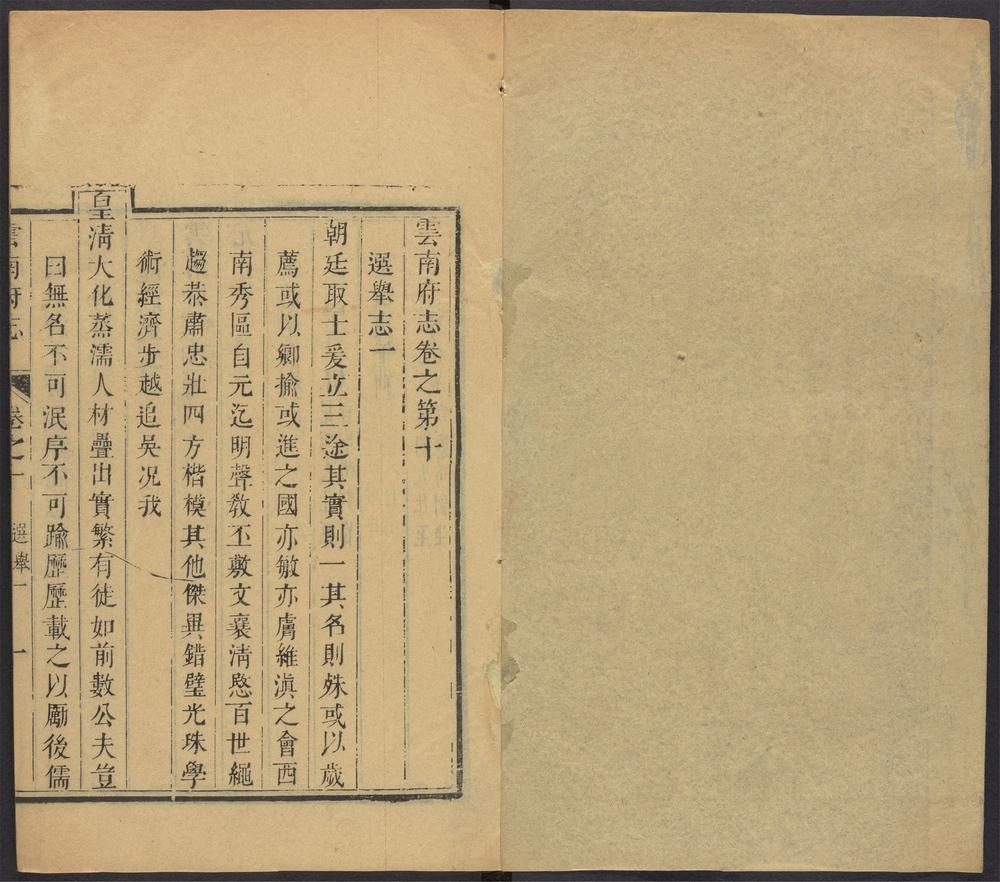 雲南府志卷之第十
選舉志一
朝廷取士爰立三途其實則一其名則殊或以歲
薦或以卿掄或進之國亦敏亦膚維滇之會西
南秀區自元迄明聲教丕敷文襄淸愍百世繩
趨恭肅忠壯四方楷模其他傑異錯璧光珠學
術經濟步越追吳况我
皇淸大化蒸濡人材疊出實繁有徒如前數公夫豈
曰無名不可泯序不可踰歷歷載之以勵後儒
雲南府志 卷之十 選舉一 一